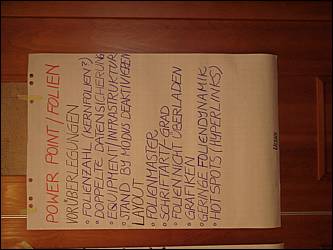 POWER POINT / FOLIEN
VORÜBERLEGUNGEN
• FOLIENZAHL (KERNFOLIEN?)
• DOPPELTE DATENSICHERUNG
• EQUIPMENT/INFRASTRUKTUR
• STAND BY MODUS DEAKTIVIEREN
LAYOUT
• FOLIENMASTER
• SCHRIFTART/-GRAD
• FOLIEN NICHT ÜBERLADEN
• GRAFIKEN
• GERINGE FOLIENDYNAMIK
• HOT SPOTS (HYPERLINKS)